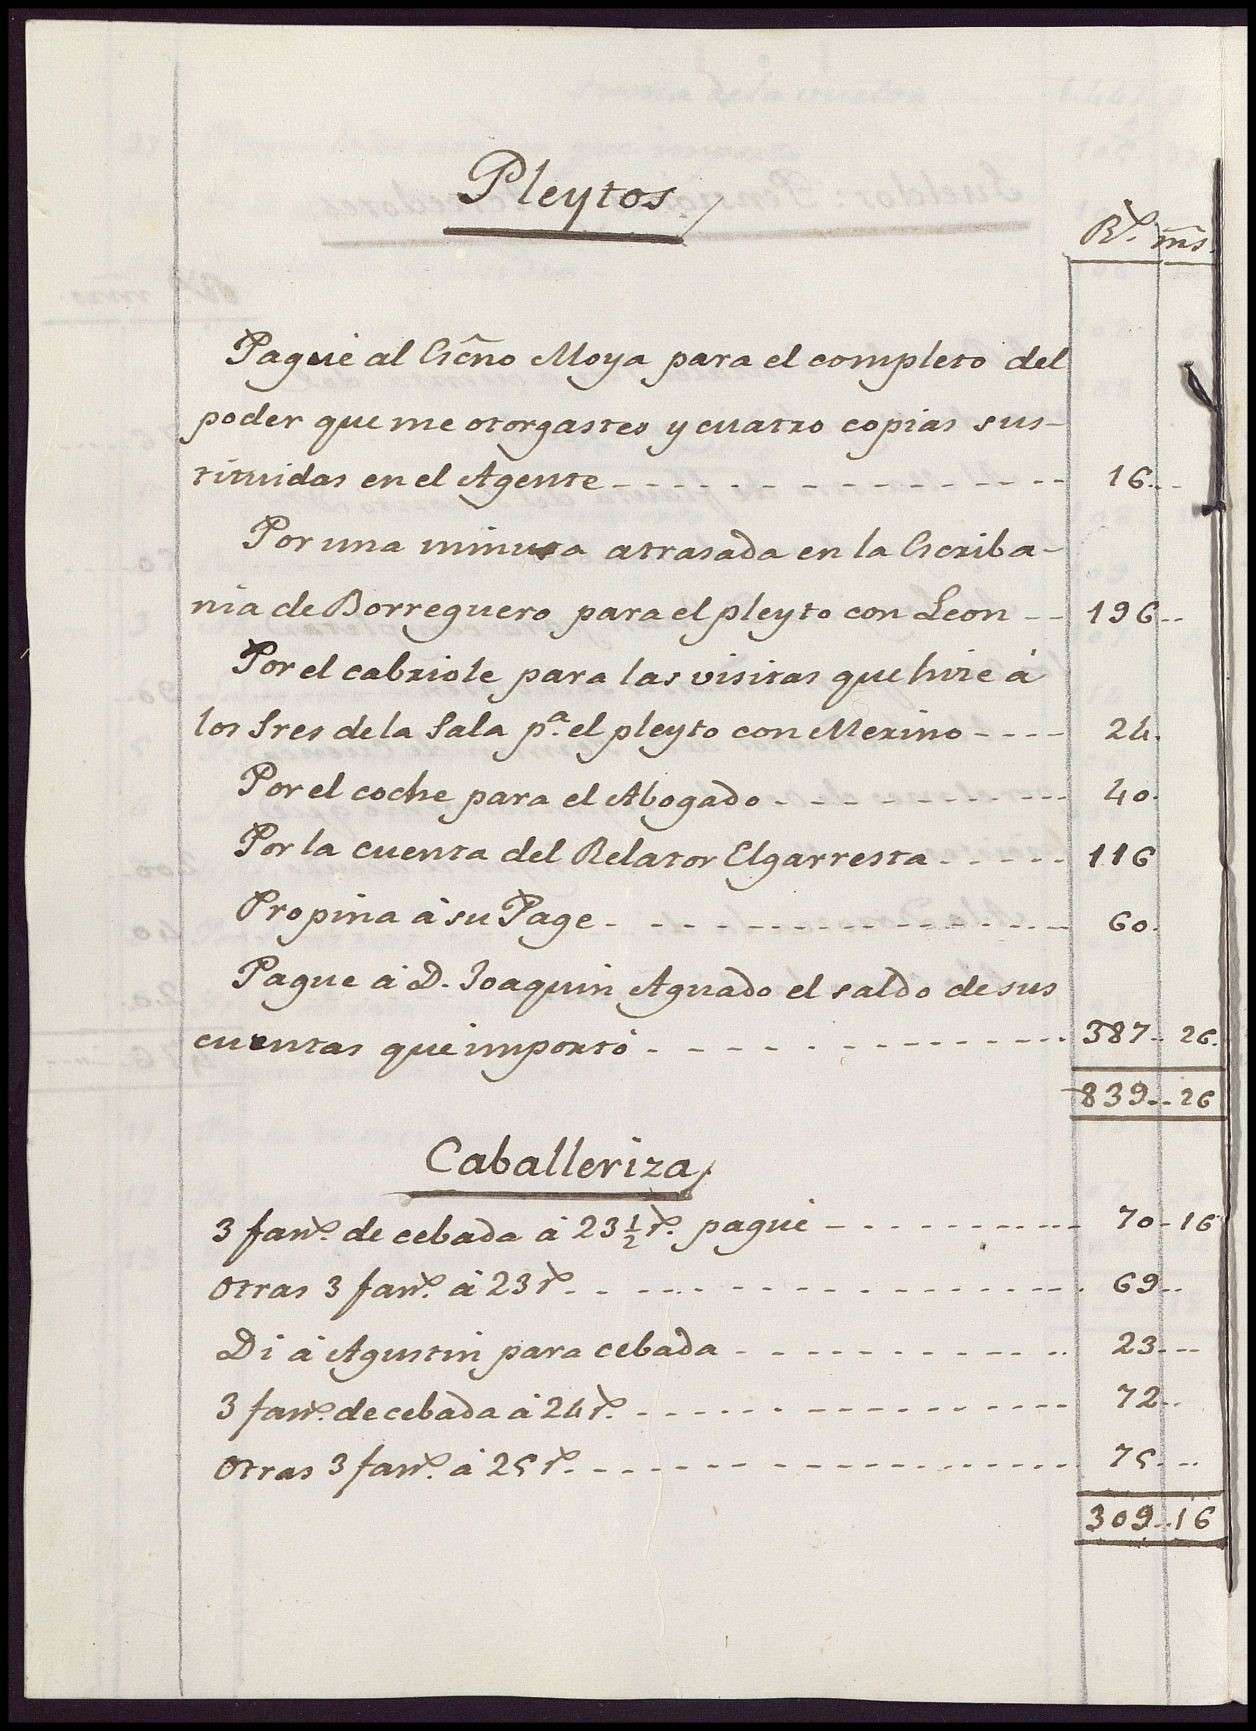 Pleytos
R.^s m̃s.
Pagué al Escño Moya para el completo del
poder que me otorgastes y cuatro copias sus-
tituidas en el Agente - - - - - - - - 16..
Por una minuta atrasada en la Escriba-
nia de Borreguero para el pleyto con Leon - - 196..
Por el cabriole para las visitas que hize á
los Sres de la Sala p.^a el pleyto con Merino - - - - 24.
Por el coche para el Abogado - - - - - - - - 40.
Por la cuenta del Relator Elgarresta - - - - - 116
Propina á su Page - - - - - - - - 60.
Pague á D. Joaquin Aguado el saldo de sus
cuentas que importó - - - - - - - - 387.. 26.
839.. 26
Caballeriza
3 fan.^s de cebada á 23 ½ r.^s pagué - - - - - - - - 70 - 16
Otras 3 fan.^s á 23 r.^s - - - - - - - - 69..
Di á Agustin para cebada - - - - - - - - 23...
3 fan.^s de cebada á 24 r.^s - - - - - - - - 72..
Otras 3 fan.^s á 25 r.^s - - - - - - - - 75...
309.. 16